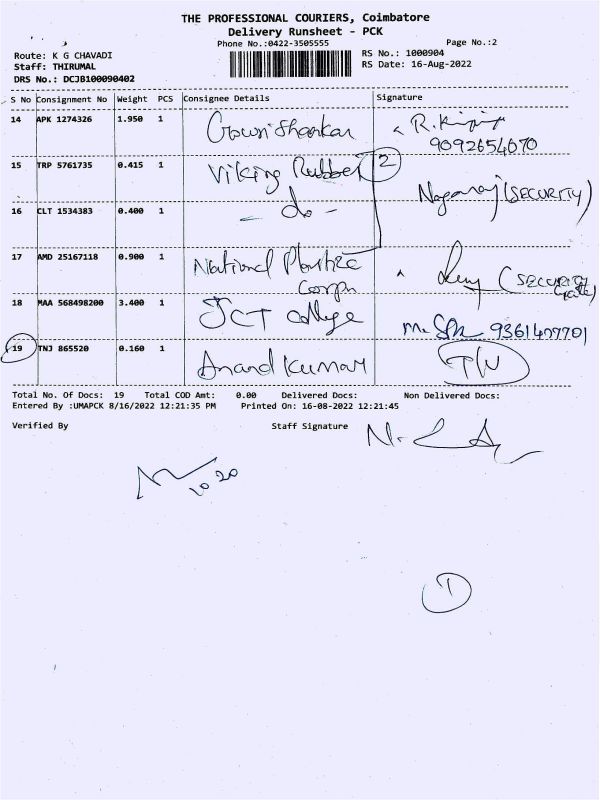 THE PROFESSIONAL COURIERS, Coimbatore
Delivery Runsheet - PCK
Phone No.:0422-3505555
Page No.:2
Route: K G CHAVADI
RS No.: 1000904
Staff: THIRUMAL
RS Date: 16-Aug-2022
DRS No.: DCJB100090402
S No Consignment No Weight PCS Consignee Details Signature
14 APK 1274326 1.950 1 Gowri Shankar R.
9092654070
15 TRP 5761735 0.415 1 Viking Rubber 2
Nagaraj (SECURITY)
16 CLT 1534383 0.400 1 - do -
17 AMD 25167118 0.900 1 National Plastic (SECURITY
Corpn Gate)
18 MAA 568498200 3.400 1 JCT College 9361407701
19 TNJ 865520 0.160 1 Anand Kumar
Total No. Of Docs: 19 Total COD Amt: 0.00 Delivered Docs: Non Delivered Docs:
Entered By :UMAPCK 8/16/2022 12:21:35 PM Printed On: 16-08-2022 12:21:45
Verified By Staff Signature
10 20
1